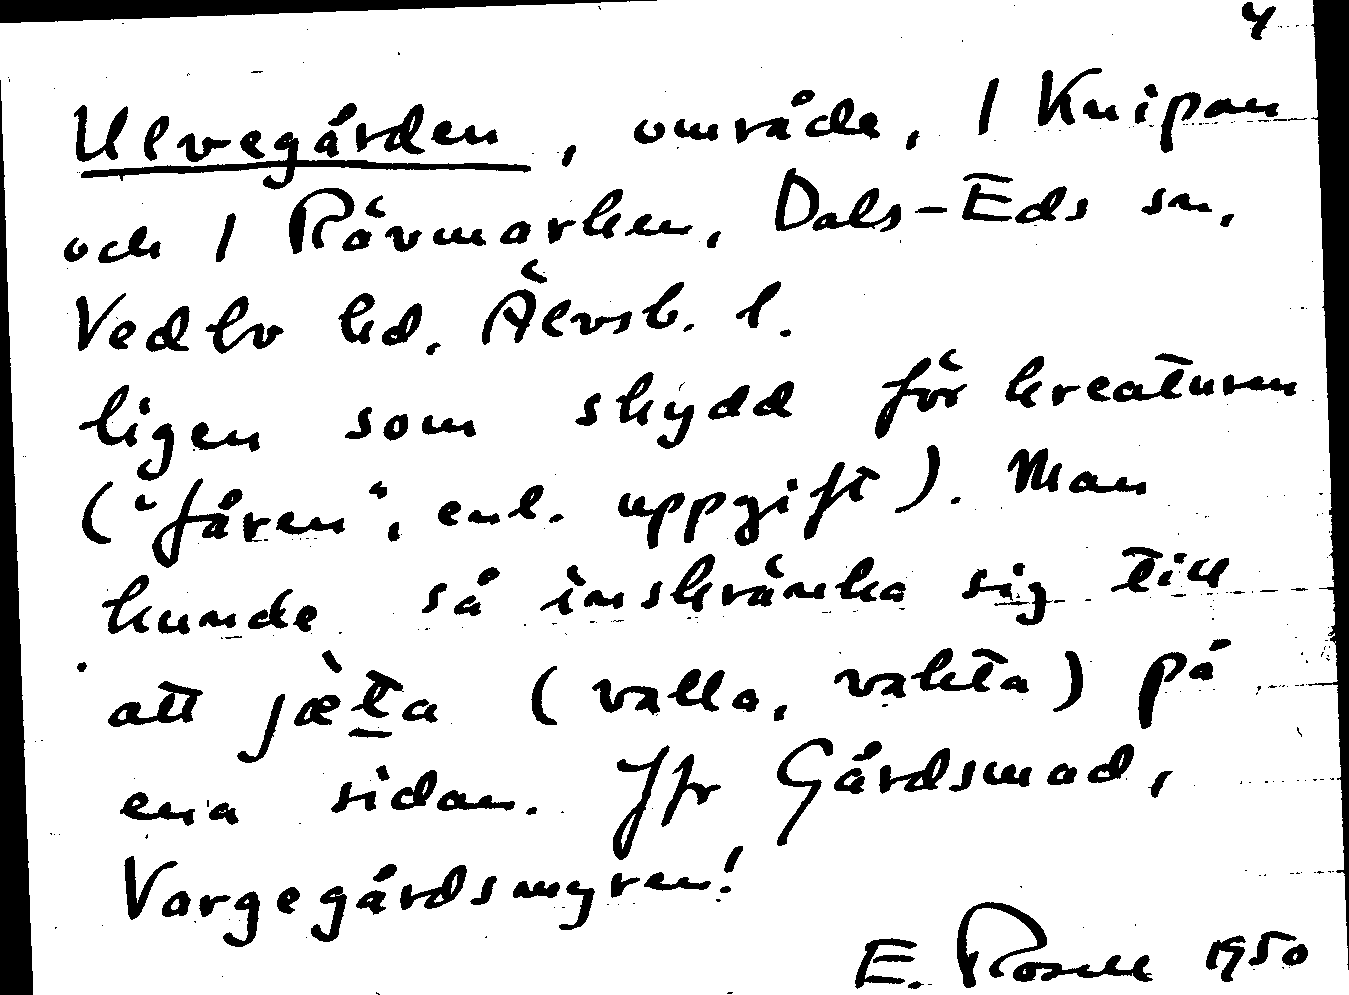 4
Ulvegården, område, / Knipan
och / Rävmarken, Dals-Eds sn,
Vedbo hd. Älvsb. l.
ligen som skydd för kreaturen
("fåren", enl. uppgift). Man
kunde så inskränka sig till
att jæ̀ta (valla, vakta) på
ena sidan. Jfr Gårdsmad,
Vargegårdsmyren!
E. Rosell 1950